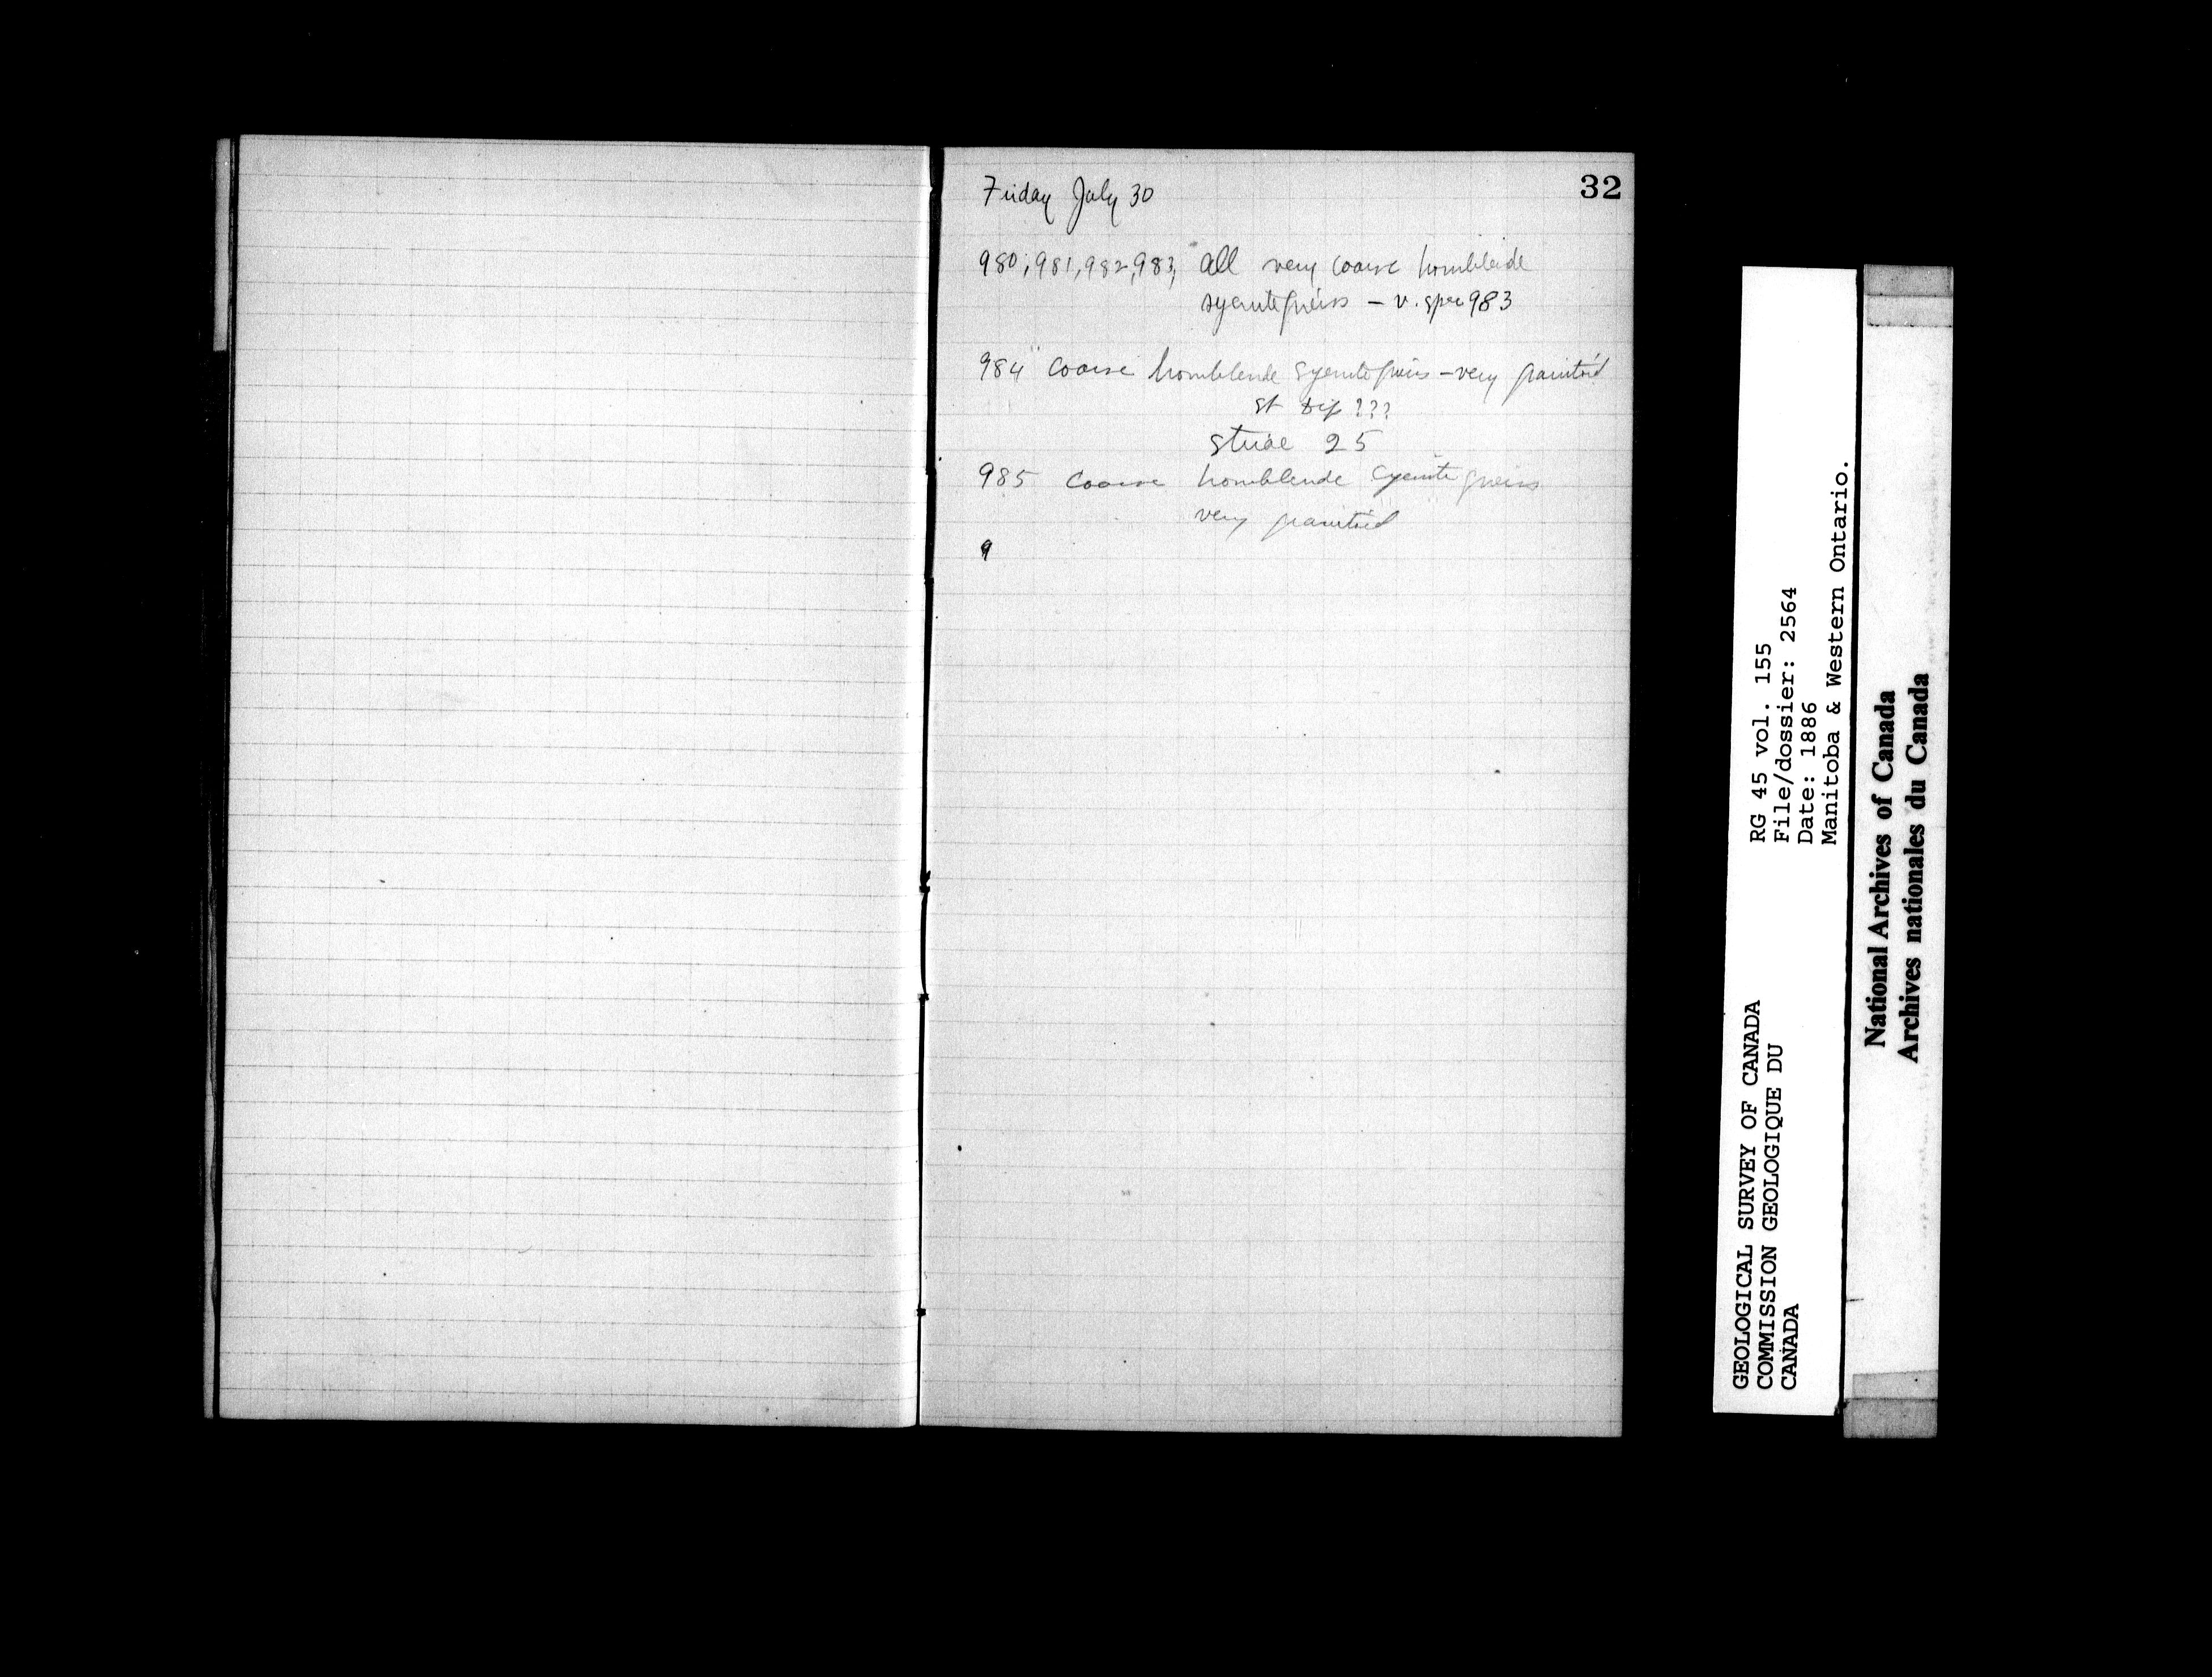 32
Friday July 30
980, 981, 982, 983, all very coarse hornblende
syenite gneiss – v. spec 983
984 Coarse hornblende syenite gneiss – very granitoid
St dip ???
Striae 25
985 Coarse hornblende Cyenite gneiss
very granitoid
9
RG 45 vol. 155
File/dossier: 2564
Date: 1886
Manitoba & Western Ontario.
GEOLOGICAL SURVEY OF CANADA
COMMISSION GEOLOGIQUE DU
CANADA
National Archives of Canada
Archives nationales du Canada